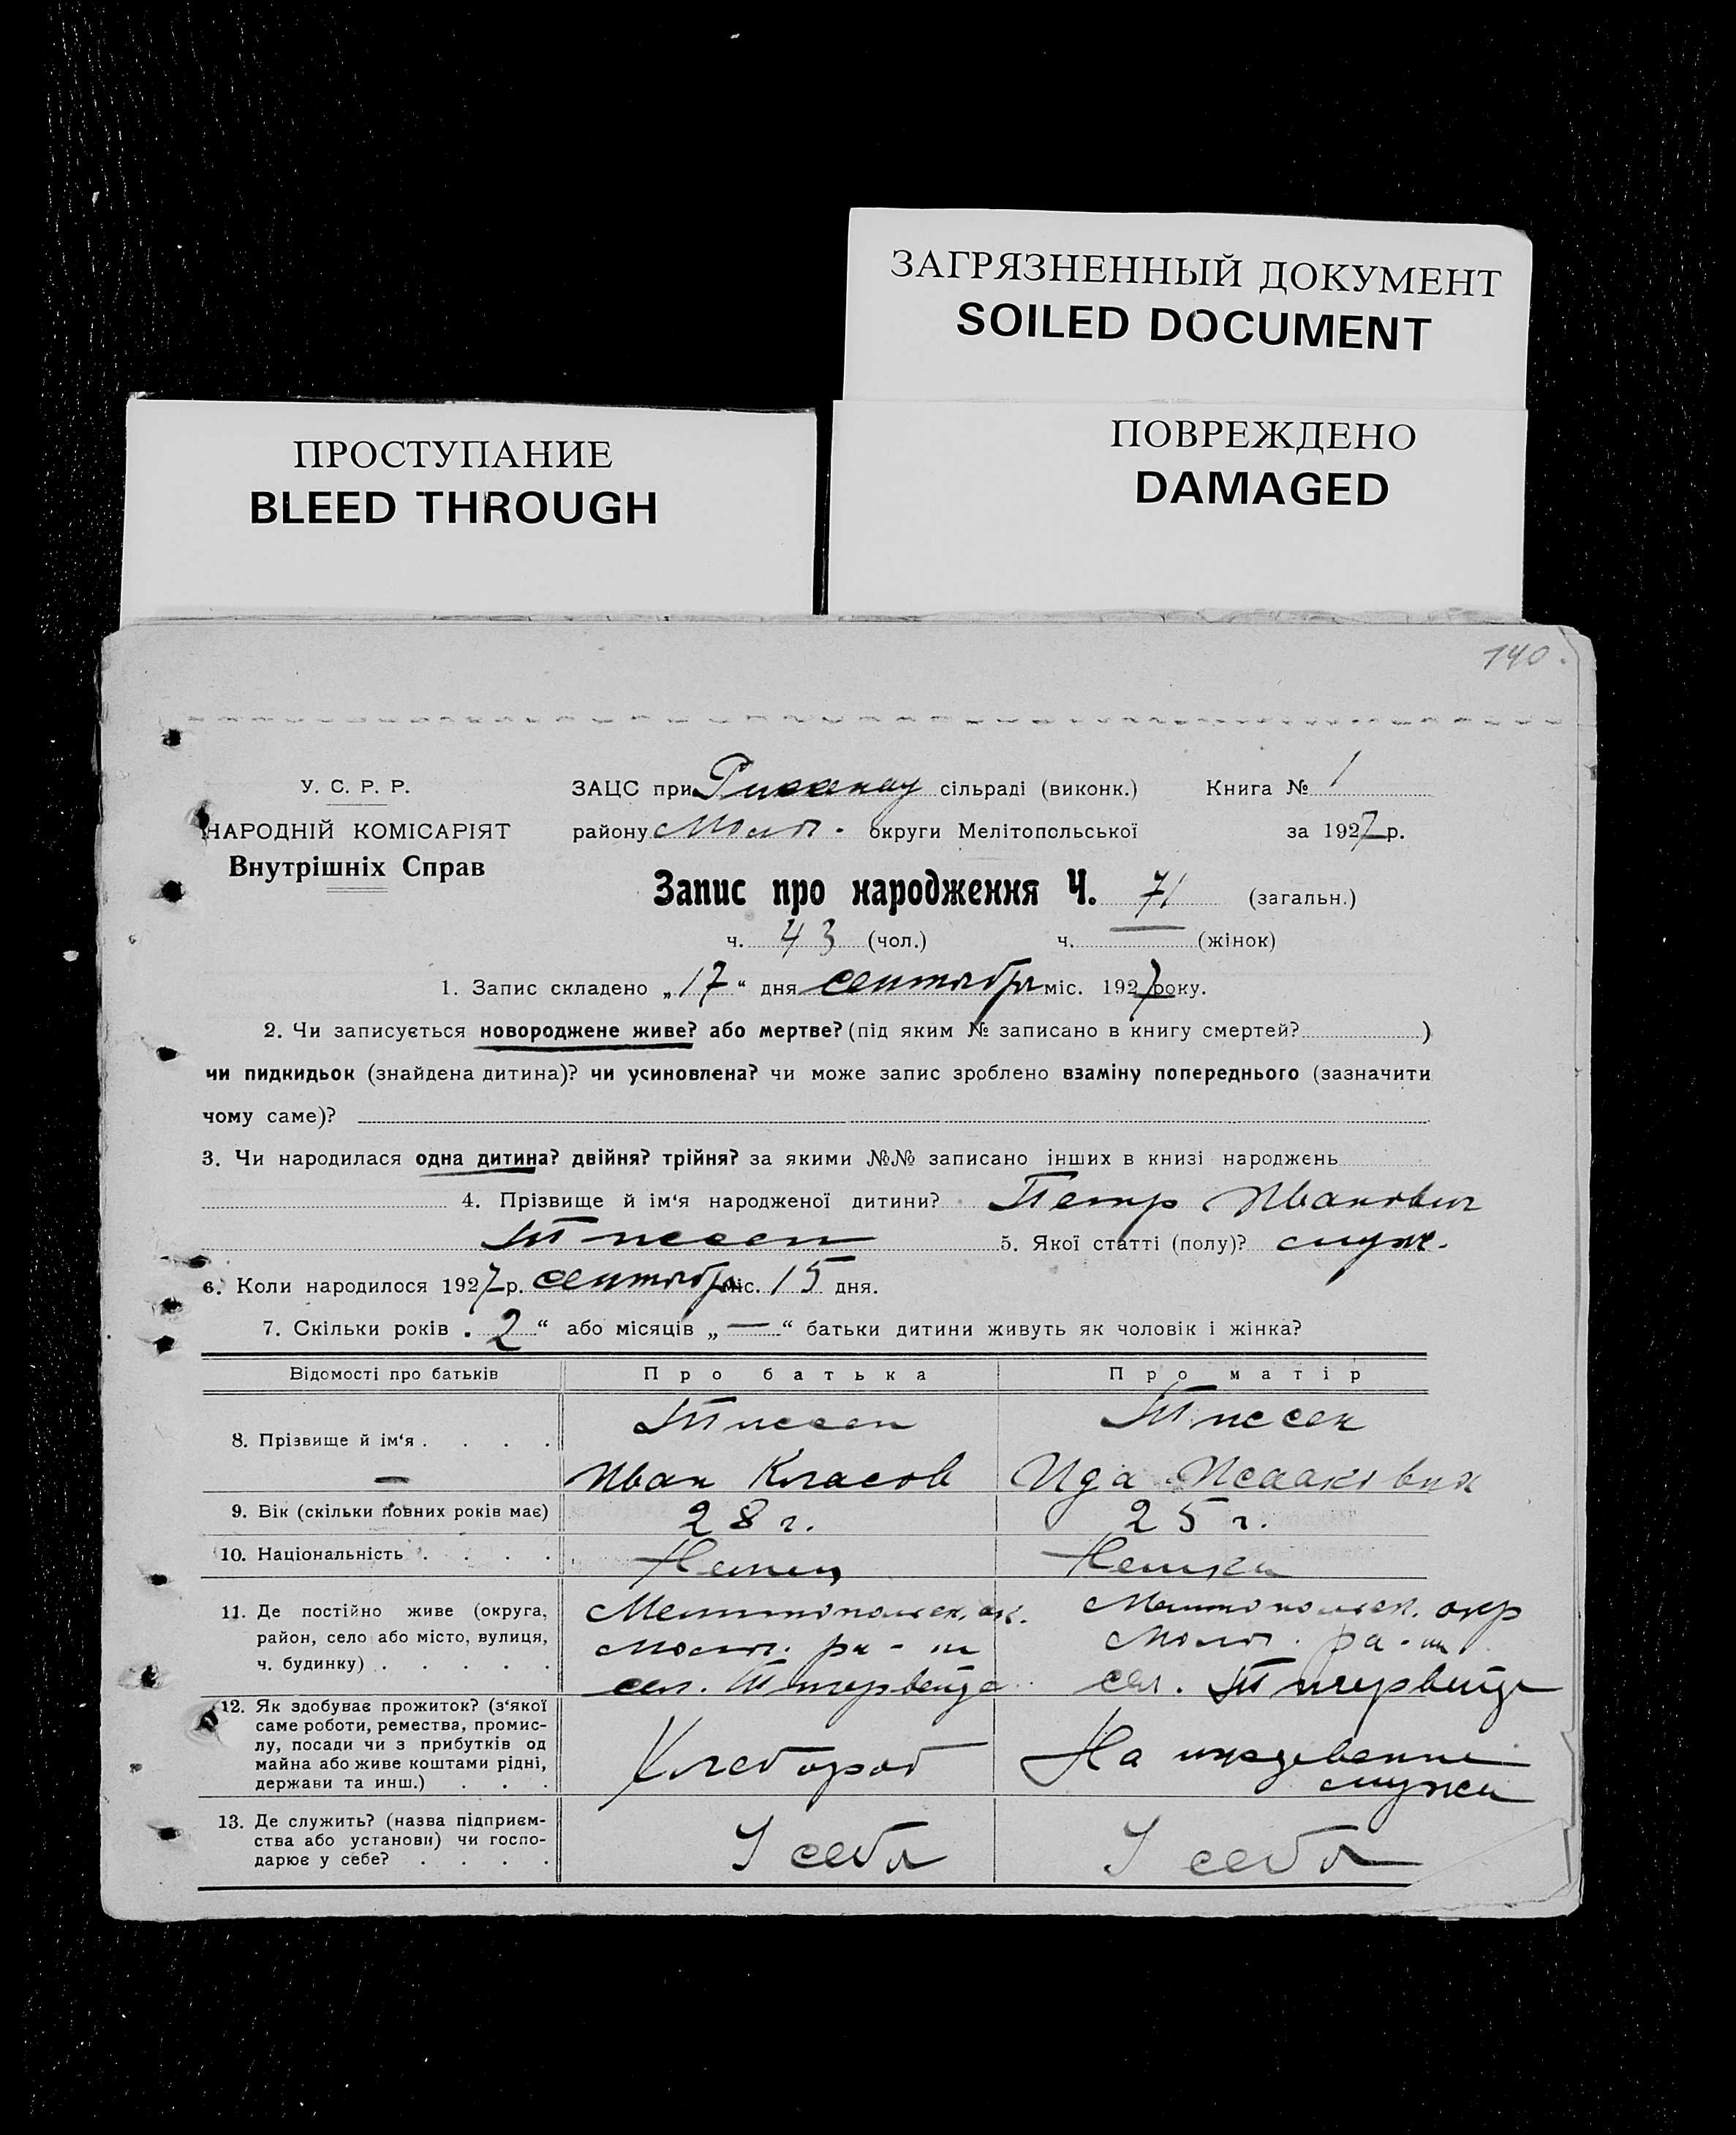 ЗАГРЯЗНЕННЫЙ ДОКУМЕНТ
SOILED DOCUMENT
ПРОСТУПАНИЕ
BLEED THROUGH
ПОВРЕЖДЕНО
DAMAGED
140.
У. С. Р. Р.
НАРОДНІЙ КОМІСАРІЯТ
Внутрішніх Справ
ЗАЦС при Рикенау сільраді (виконк.) Книга № 1
району Молоч. округи Мелітопольської за 1927 р.
Запис про народження Ч. 71 (загальн.)
ч. 43 (чол.) ч. — (жінок)
1. Запис складено „17“ дня сентября міс. 1927 року.
2. Чи записується новороджене живе? або мертве? (під яким № записано в книгу смертей? )
чи пидкидьок (знайдена дитина)? чи усиновлена? чи може запис зроблено взаміну попереднього (зазначити
чому саме)?
3. Чи народилася одна дитина? двійня? трійня? за якими №№ записано інших в книзі народжень
4. Прізвище й ім‘я народженої дитини? Петр Иванович
Тиссен 5. Якої статті (полу)? муж.
6. Коли народилося 1927 р. сентября міс. 15 дня.
7. Скільки років „2“ або місяців „—“ батьки дитини живуть як чоловік і жінка?
Відомості про батьків Про батька Про матір
8. Прізвище й ім‘я . . . . Тиссен Тиссен
Иван Класов Ида Исааковн
9. Вік (скільки повних років має) 28 г. 25 г.
10. Національність . . . . Немец Немка
11. Де постійно живе (округа, Мелитопольск. ок. Мелитопольск. окр
район, село або місто, вулиця, Молоч. ра-н Молоч. ра-н
ч. будинку) . . . . . сел. Тигервейде сел. Тигервейде
12. Як здобуває прожиток? (з‘якої
саме роботи, ремества, промис-
лу, посади чи з прибутків од
майна або живе коштами рідні, Хлебороб На иждевении
держави та инш.) . . . мужа
13. Де служить? (назва підприєм-
ства або установи) чи госпо- У себя У себя
дарює у себе? . . . .